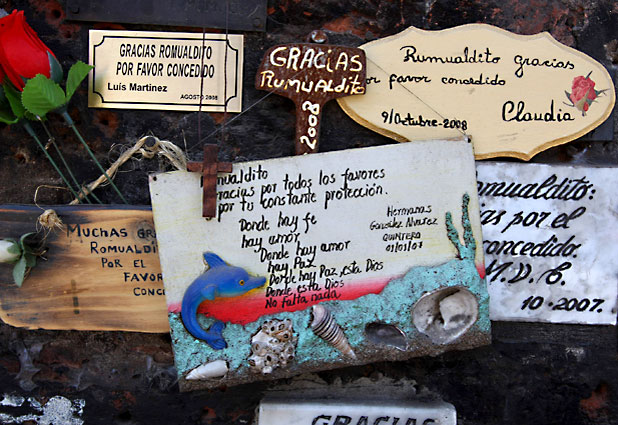 GRACIAS ROMUALDITO
POR FAVOR CONCEDIDO
Luís Martinez
AGOSTO 2008
GRACIAS
RUMUALDITO
2008
Rumualdito gracias
por favor concedido
Claudia
9/Octubre-2008
MUCHAS GRA
ROMUALDI
POR EL
FAVOR
CONCE
mualdito
gracias por todos los favores
por tu constante protección.
Donde hay fe
hay amor
Donde hay amor
hay Paz
Donde hay Paz, esta Dios
Donde esta Dios
No falta nada
Hermanas
González Alvarez
QUINTERO
01/01/07
omualdito:
cias por el
concedido.
M. V. C.
10-2007.
GRACIAS